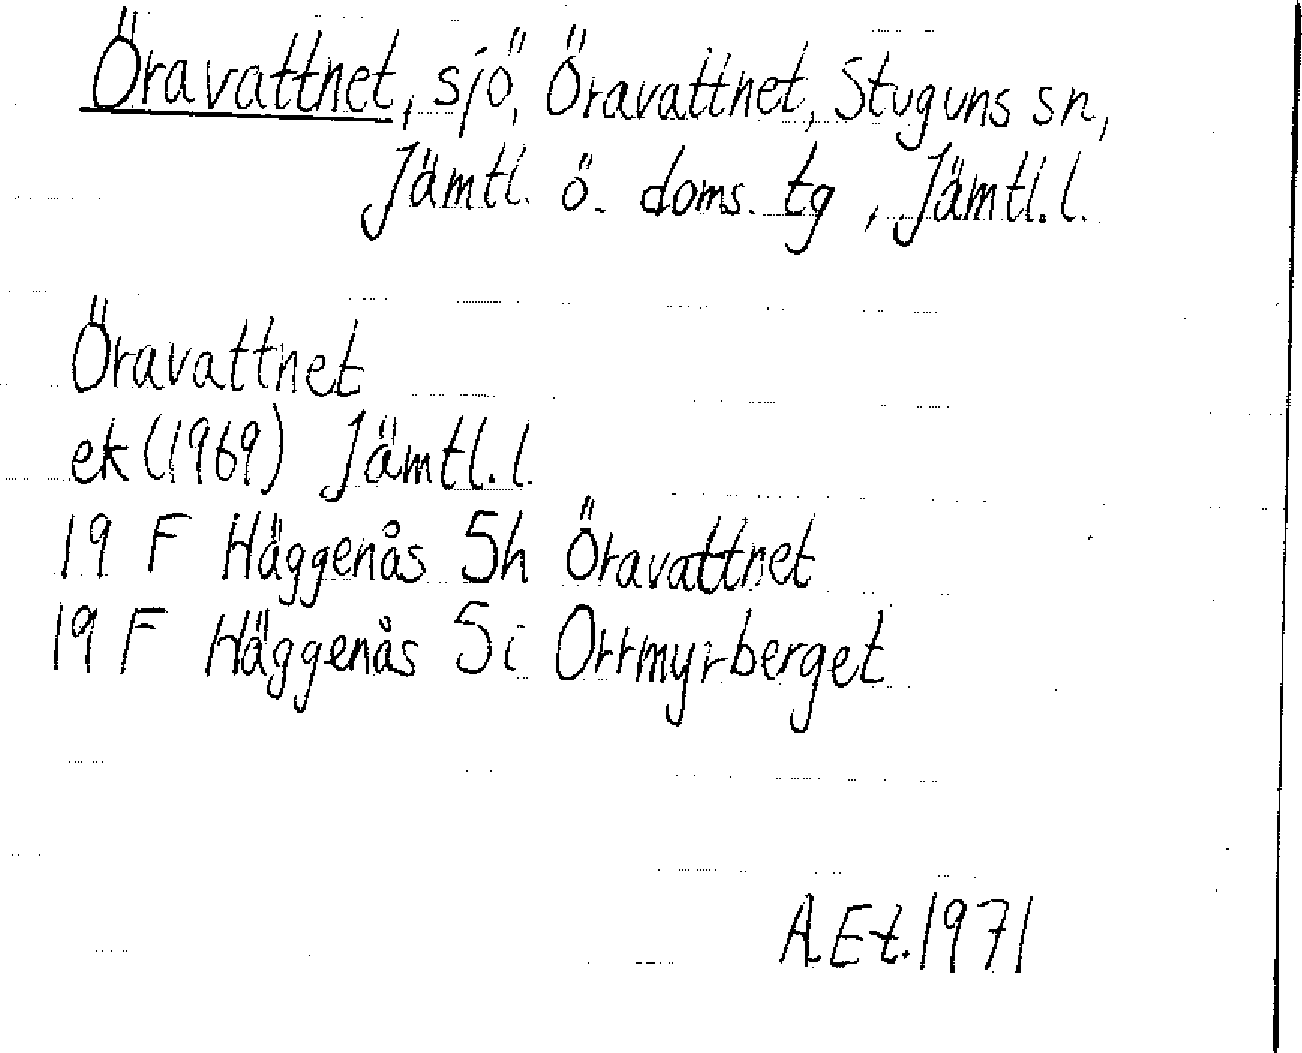 Öravattnet, sjö, Öravattnet, Stuguns sn,
Jämtl. ö. doms. tg, Jämtl. l.
Öravattnet
ek (1969) Jämtl. l.
19 F Häggenås 5h Öravattnet
19 F Häggenås 5i Orrmyrberget
A.Et.1971